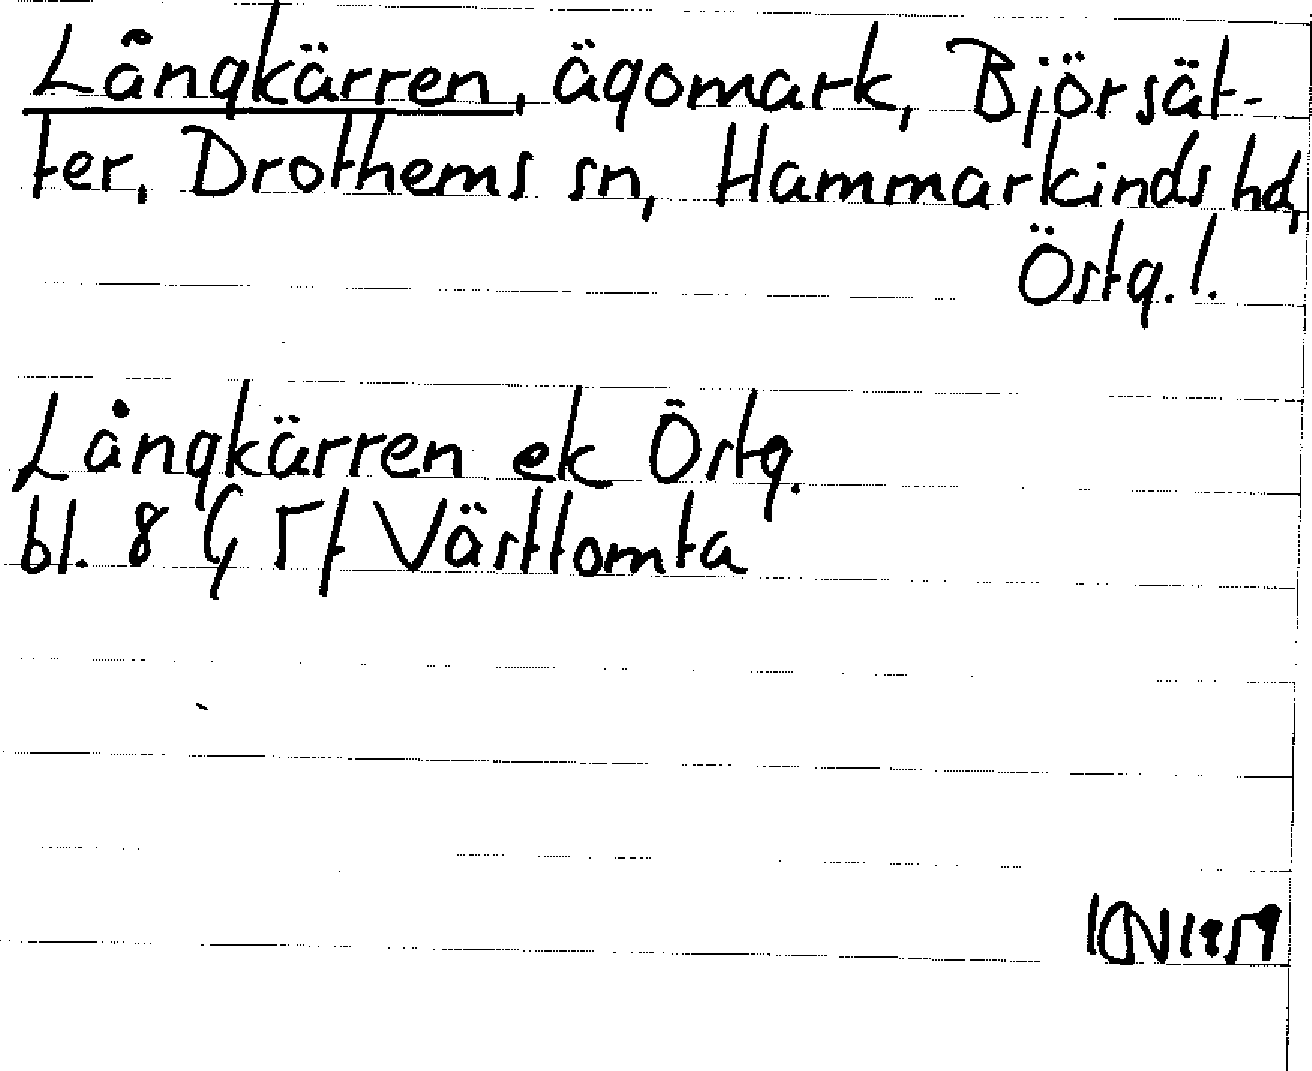 Långkärren, ägomark, Björsät-
ter, Drothems sn, Hammarkinds hd,
Östg. l.
Långkärren ek Östg.
bl. 8 Västtomta
1959